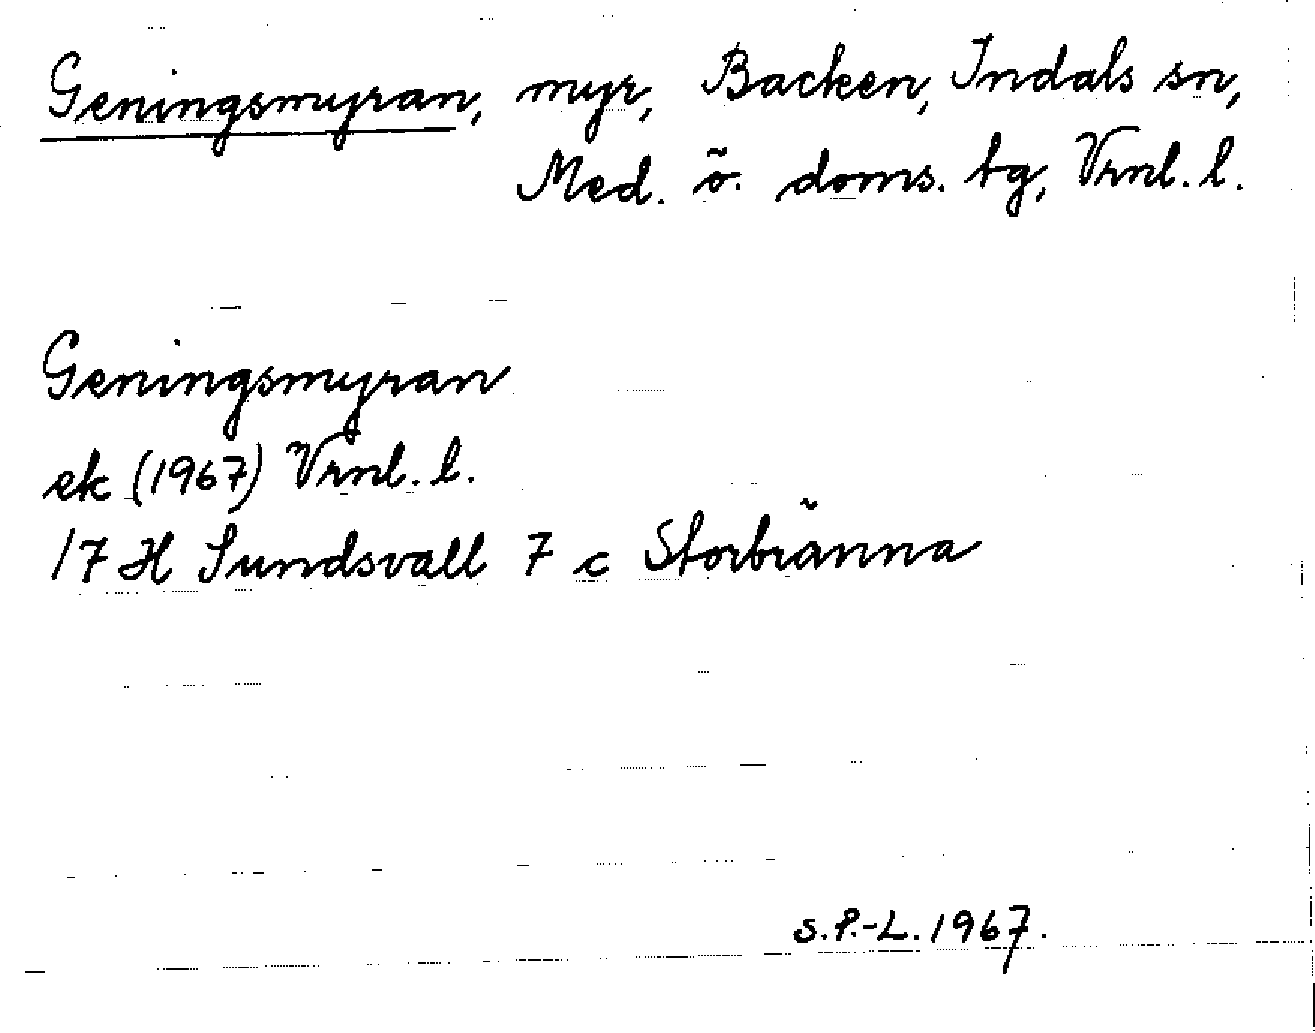 Geningsmyran, myr, Backen, Indals sn,
Med. ö. doms. tg, Vrnl. l.
Geningsmyran
ek (1967) Vrnl. l.
17 H Sundsvall 7 c Storbränna
S.P.-L. 1967.